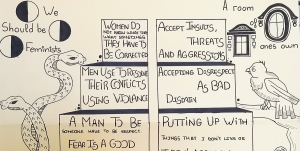 We
Should be
Feminists
Women Do
not know what they
want sometimes
They Have to
Be Corrected
Accept Insults,
Threats
And Aggressions
A room
of
ones own
Men Use To Resolve
Their Conflicts
Using Violence
Accepting Disrespect
As Bad
Destiny
A Man To Be
someone have to be respect.
Fear Is A Good
Putting Up With
things that I don't love or